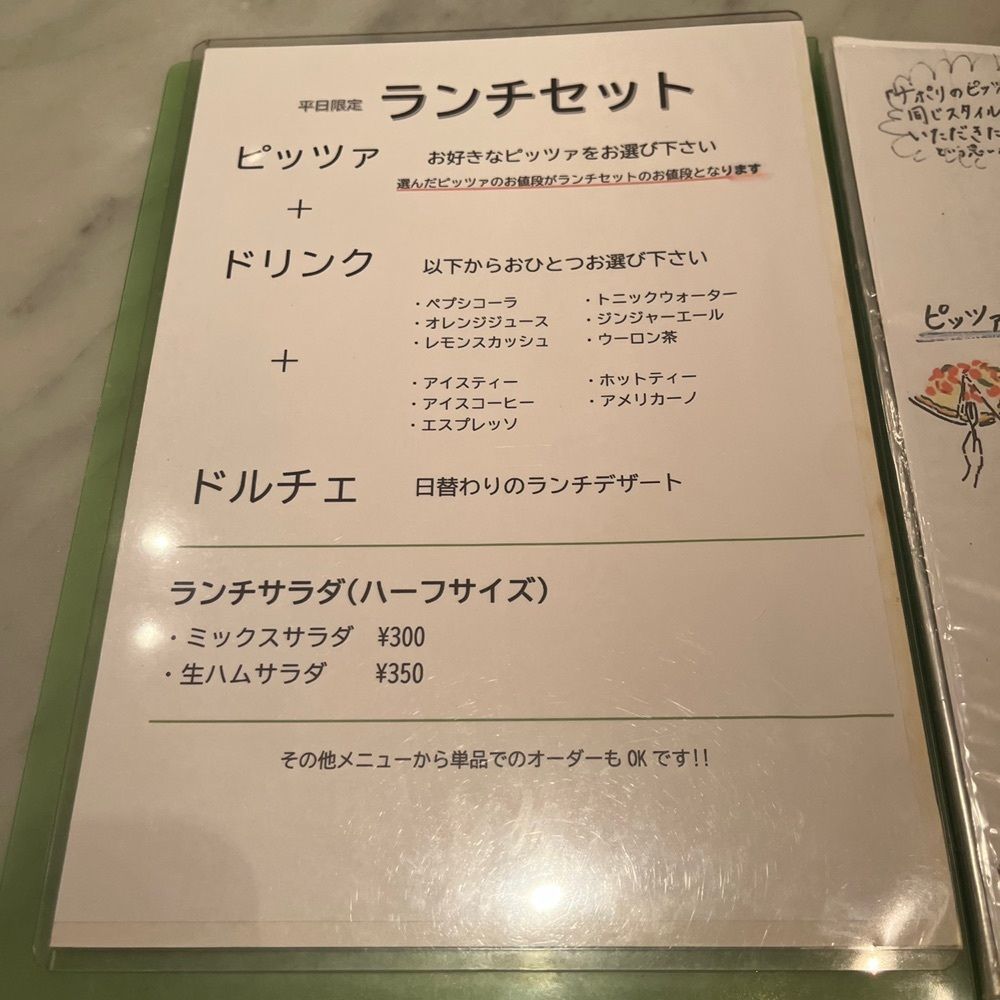 平日限定 ランチセット
ピッツァ お好きなピッツァをお選び下さい
選んだピッツァのお値段がランチセットのお値段となります
+
ドリンク 以下からおひとつお選び下さい
・ペプシコーラ ・トニックウォーター
・オレンジジュース ・ジンジャーエール
・レモンスカッシュ ・ウーロン茶
+
・アイスティー ・ホットティー
・アイスコーヒー ・アメリカーノ
・エスプレッソ
ドルチェ 日替わりのランチデザート
ランチサラダ(ハーフサイズ)
・ミックスサラダ ¥300
・生ハムサラダ ¥350
その他メニューから単品でのオーダーもOKです!!
ナポリのピッツ
同じスタイル
いただきた
ピッツァ